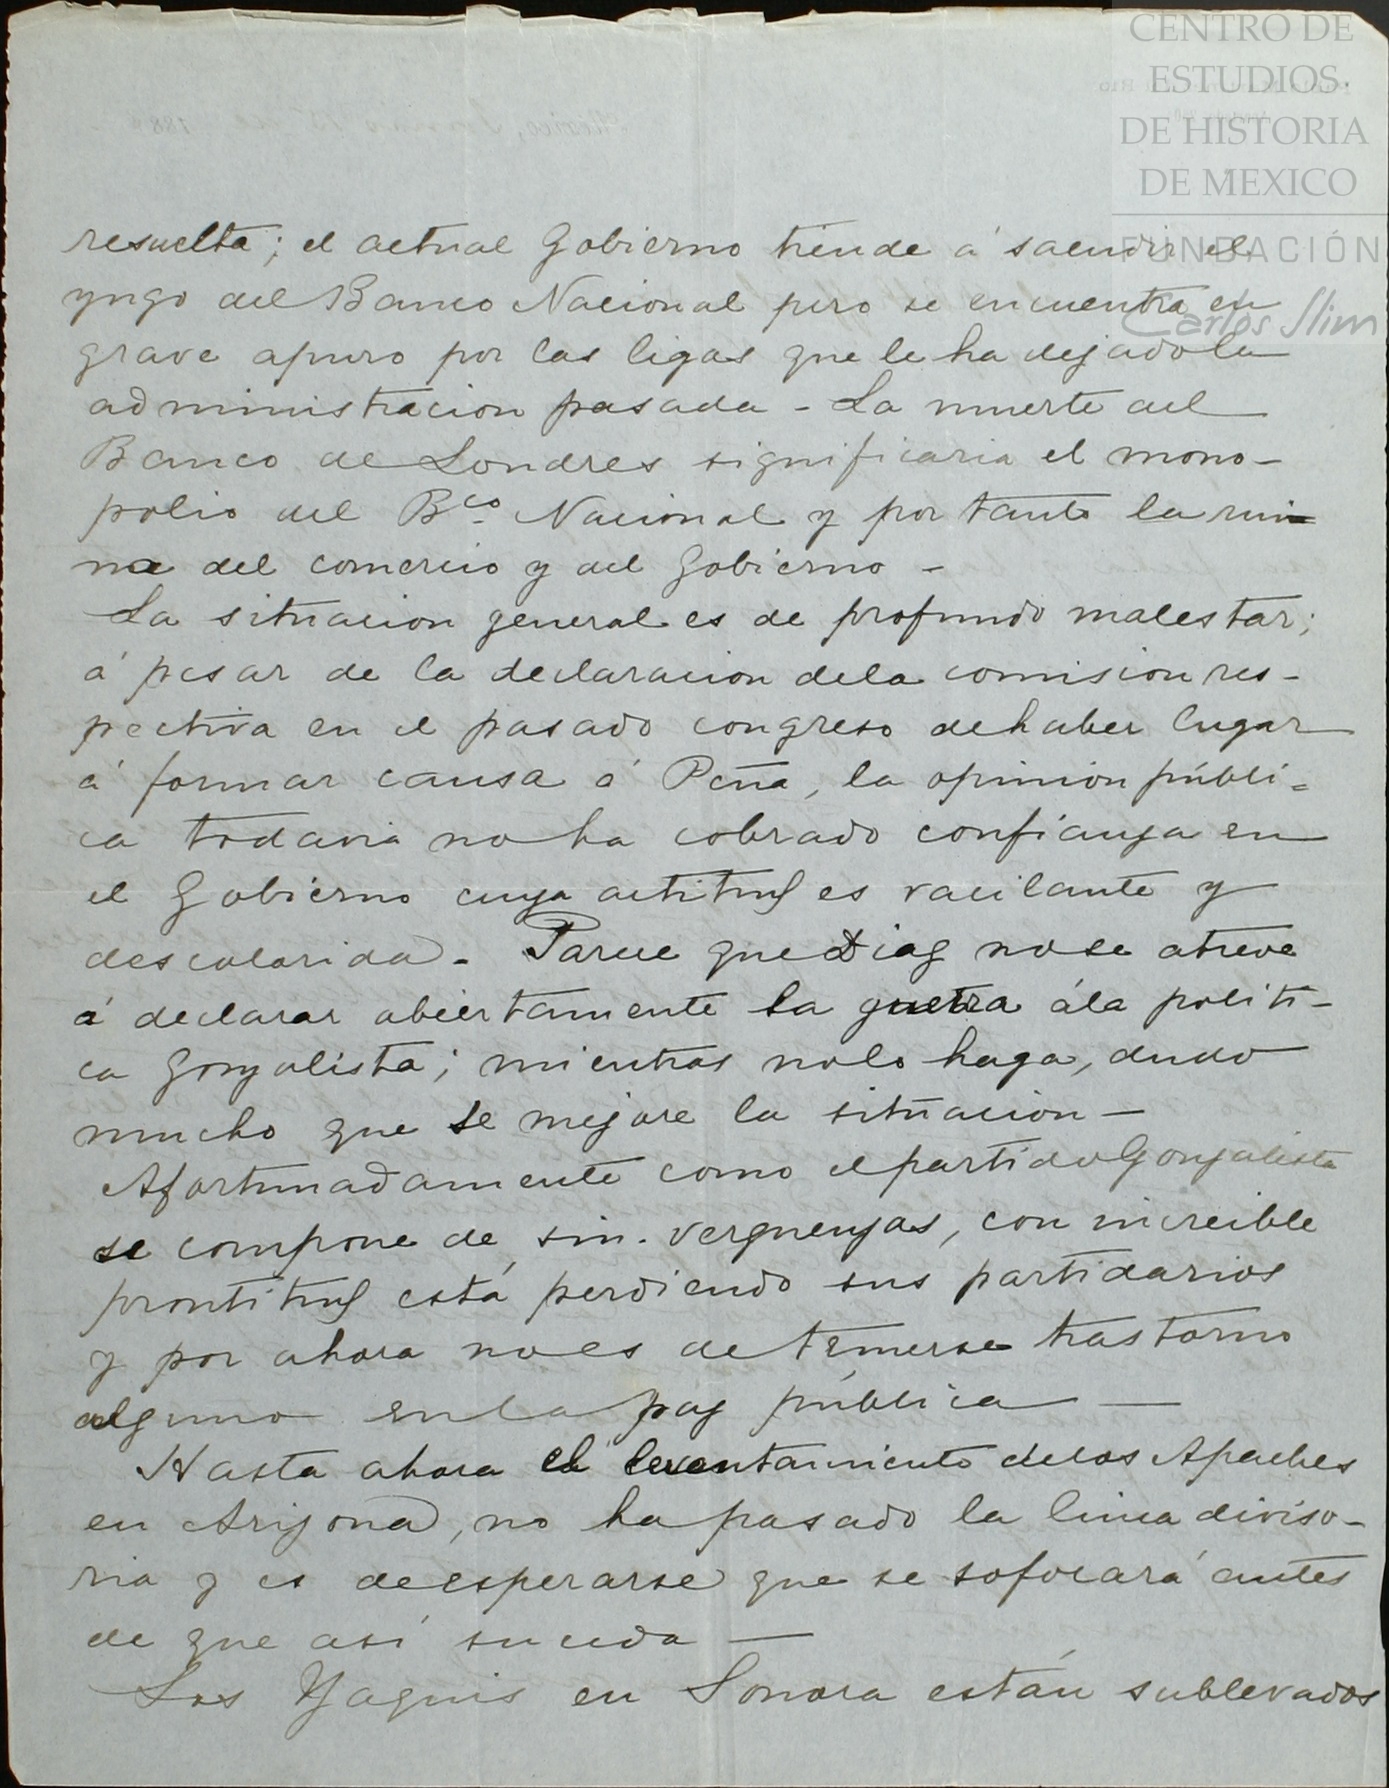 CENTRO DE
ESTUDIOS
DE HISTORIA
DE MEXICO
FUNDACIÓN
Carlos Slim
resuelta; el actual Gobierno tiende á sacudir el
yugo del Banco Nacional pero se encuentra en
grave apuro por las ligas que le ha dejado la
administracion pasada - La muerte del
Banco de Londres significaria el mono-
polio del Bco. Nacional y por tanto la rui-
na del comercio y del Gobierno -
La situacion general es de profundo malestar;
á pesar de la declaracion dela comision res-
pectiva en el pasado congreso de haber lugar
á formar causa á Peña, la opinion públi-
ca todavia no ha cobrado confianza en
el Gobierno cuya actitud es vacilante y
descolorida. Parece que Diaz no se atreve
á declarar abiertamente la guerra ála politi-
ca Gonzalista; mientras nolo haga, dudo
mucho que se mejore la situacion -
Afortunadamente como el partido Gonzalista
se compone de sin-verguenzas, con increible
prontitud está perdiendo sus partidarios
y por ahora no es de temerse trastorno
alguno en la paz pública -
Hasta ahora el levantamiento delos Apaches
en Arizona, no ha pasado la linea diviso-
ria y es de esperarse que se sofocará antes
de que así suceda -
Los Yaquis en Sonora están sublevados